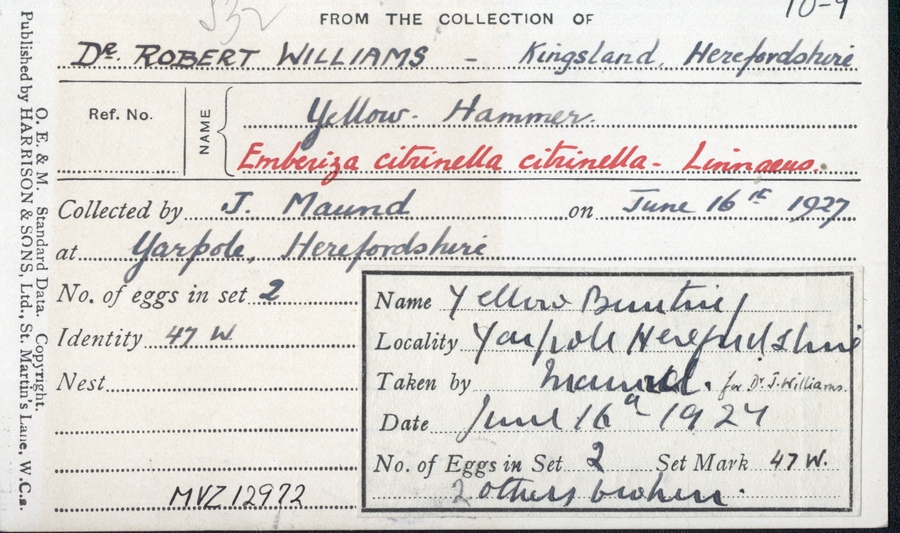 532
10-9
FROM THE COLLECTION OF
Dr. ROBERT WILLIAMS - Kingsland, Herefordshire
Ref. No.
NAME
Yellow. Hammer.
Emberiza citrinella citrinella - Linnaeus.
Collected by J. Maund on June 16th 1927
at Yarpole, Herefordshire
No. of eggs in set 2
Identity 47 W
Nest
MVZ 12972
Name Yellow Bunting
Locality Yarpole Herefordshire
Taken by Maund. for Dr. J. Williams.
Date June 16th 1927
No. of Eggs in Set 2 Set Mark 47 W.
2 others broken.
O. E. & M. Standard Data. Copyright.
Published by HARRISON & SONS, Ltd., St. Martin's Lane, W.C.2.